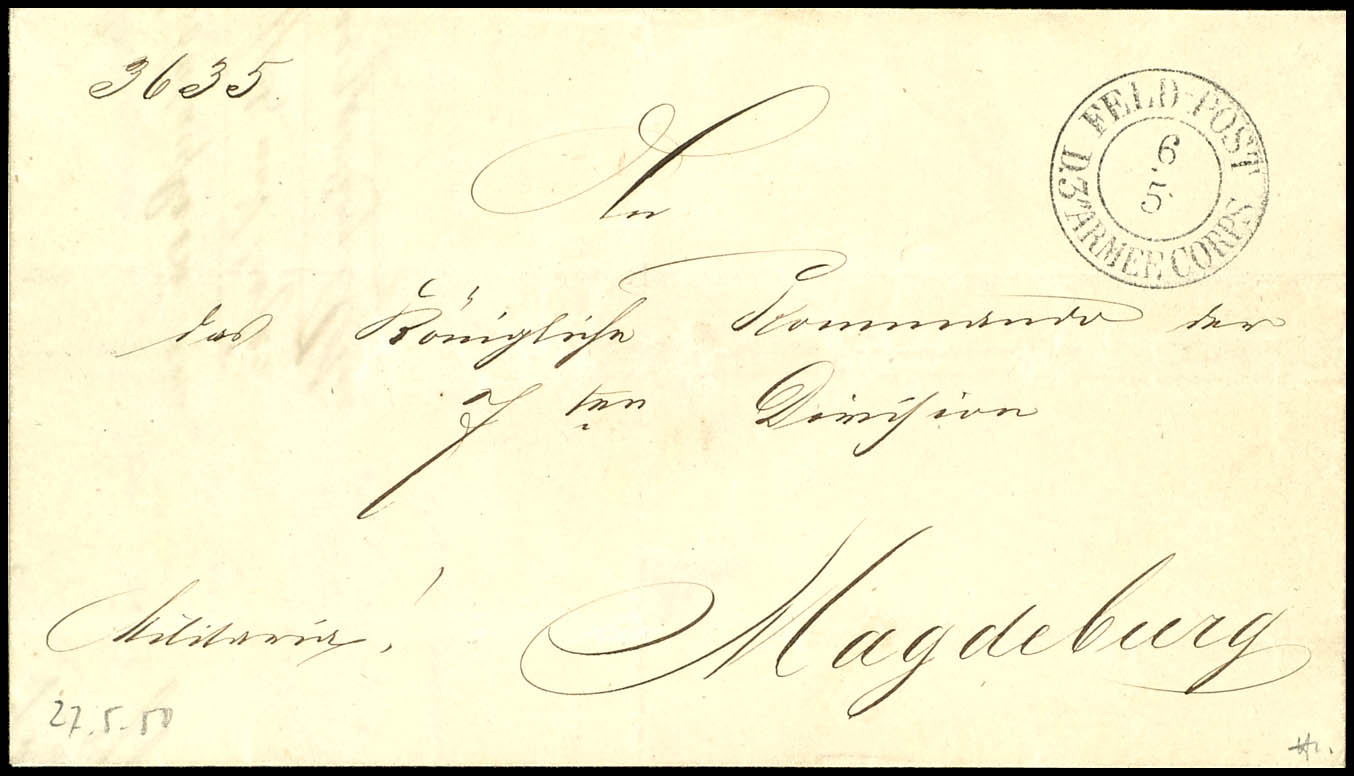 3635.
FELD-POST
D. 3n ARMEE CORPS
6
5.
An
das Königliche Kommando der
7ten Division
Magdeburg
Militaria.
27.5.50